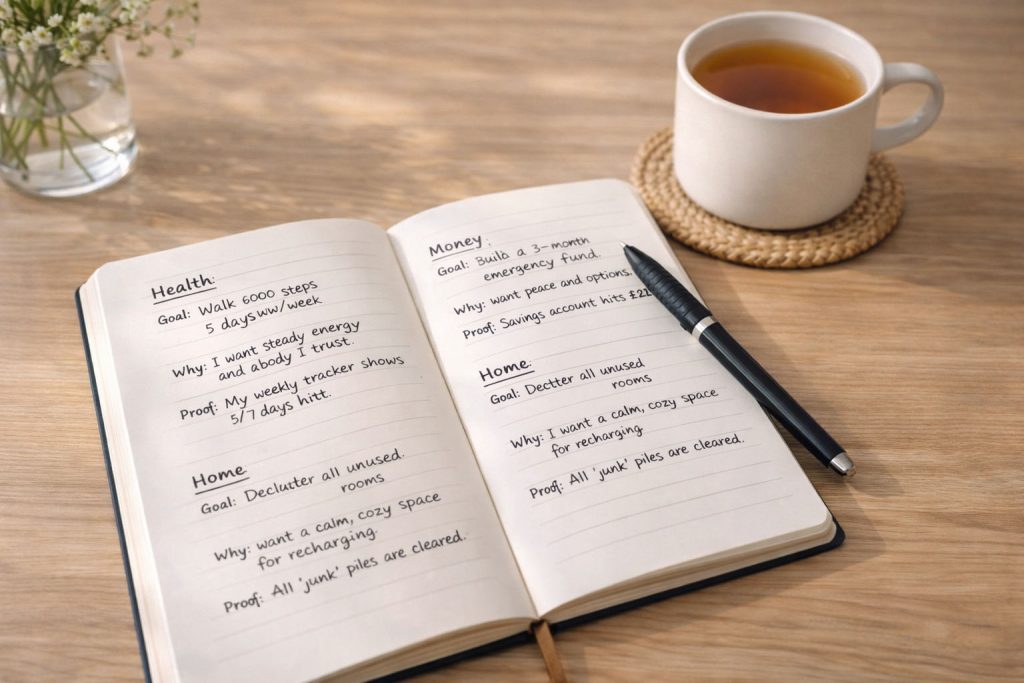 Health:
Goal: Walk 6000 steps
5 daysww/week
Why: I want steady energy
and abody I trust.
Proof: My weekly tracker shows
5/7 days hitt.
Home
Goal: Decluster all unused.
rooms
Why: want a calm, cozy space
for recharging.
Proof: All 'junk' piles are cleared.
Money:
Goal: Build a 3-month
emergency fund.
Why: want peace and options.
Proof: Savings account hits
Home:
Goal: Dectter all unused
rooms
Why: I want a calm, cozy space
for recharging
Proof: All 'junk' piles are cleared.